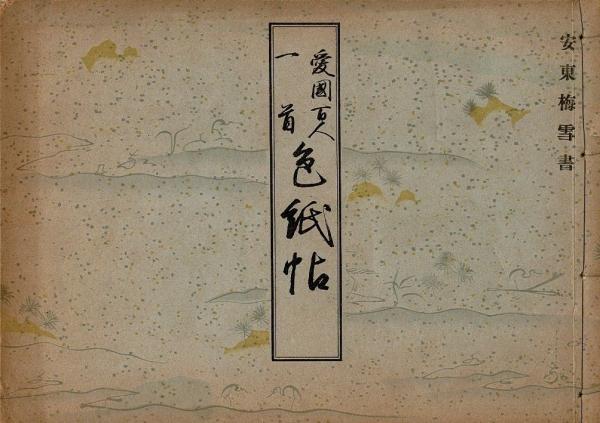 安東梅雪書
愛國百人
一首
色紙帖